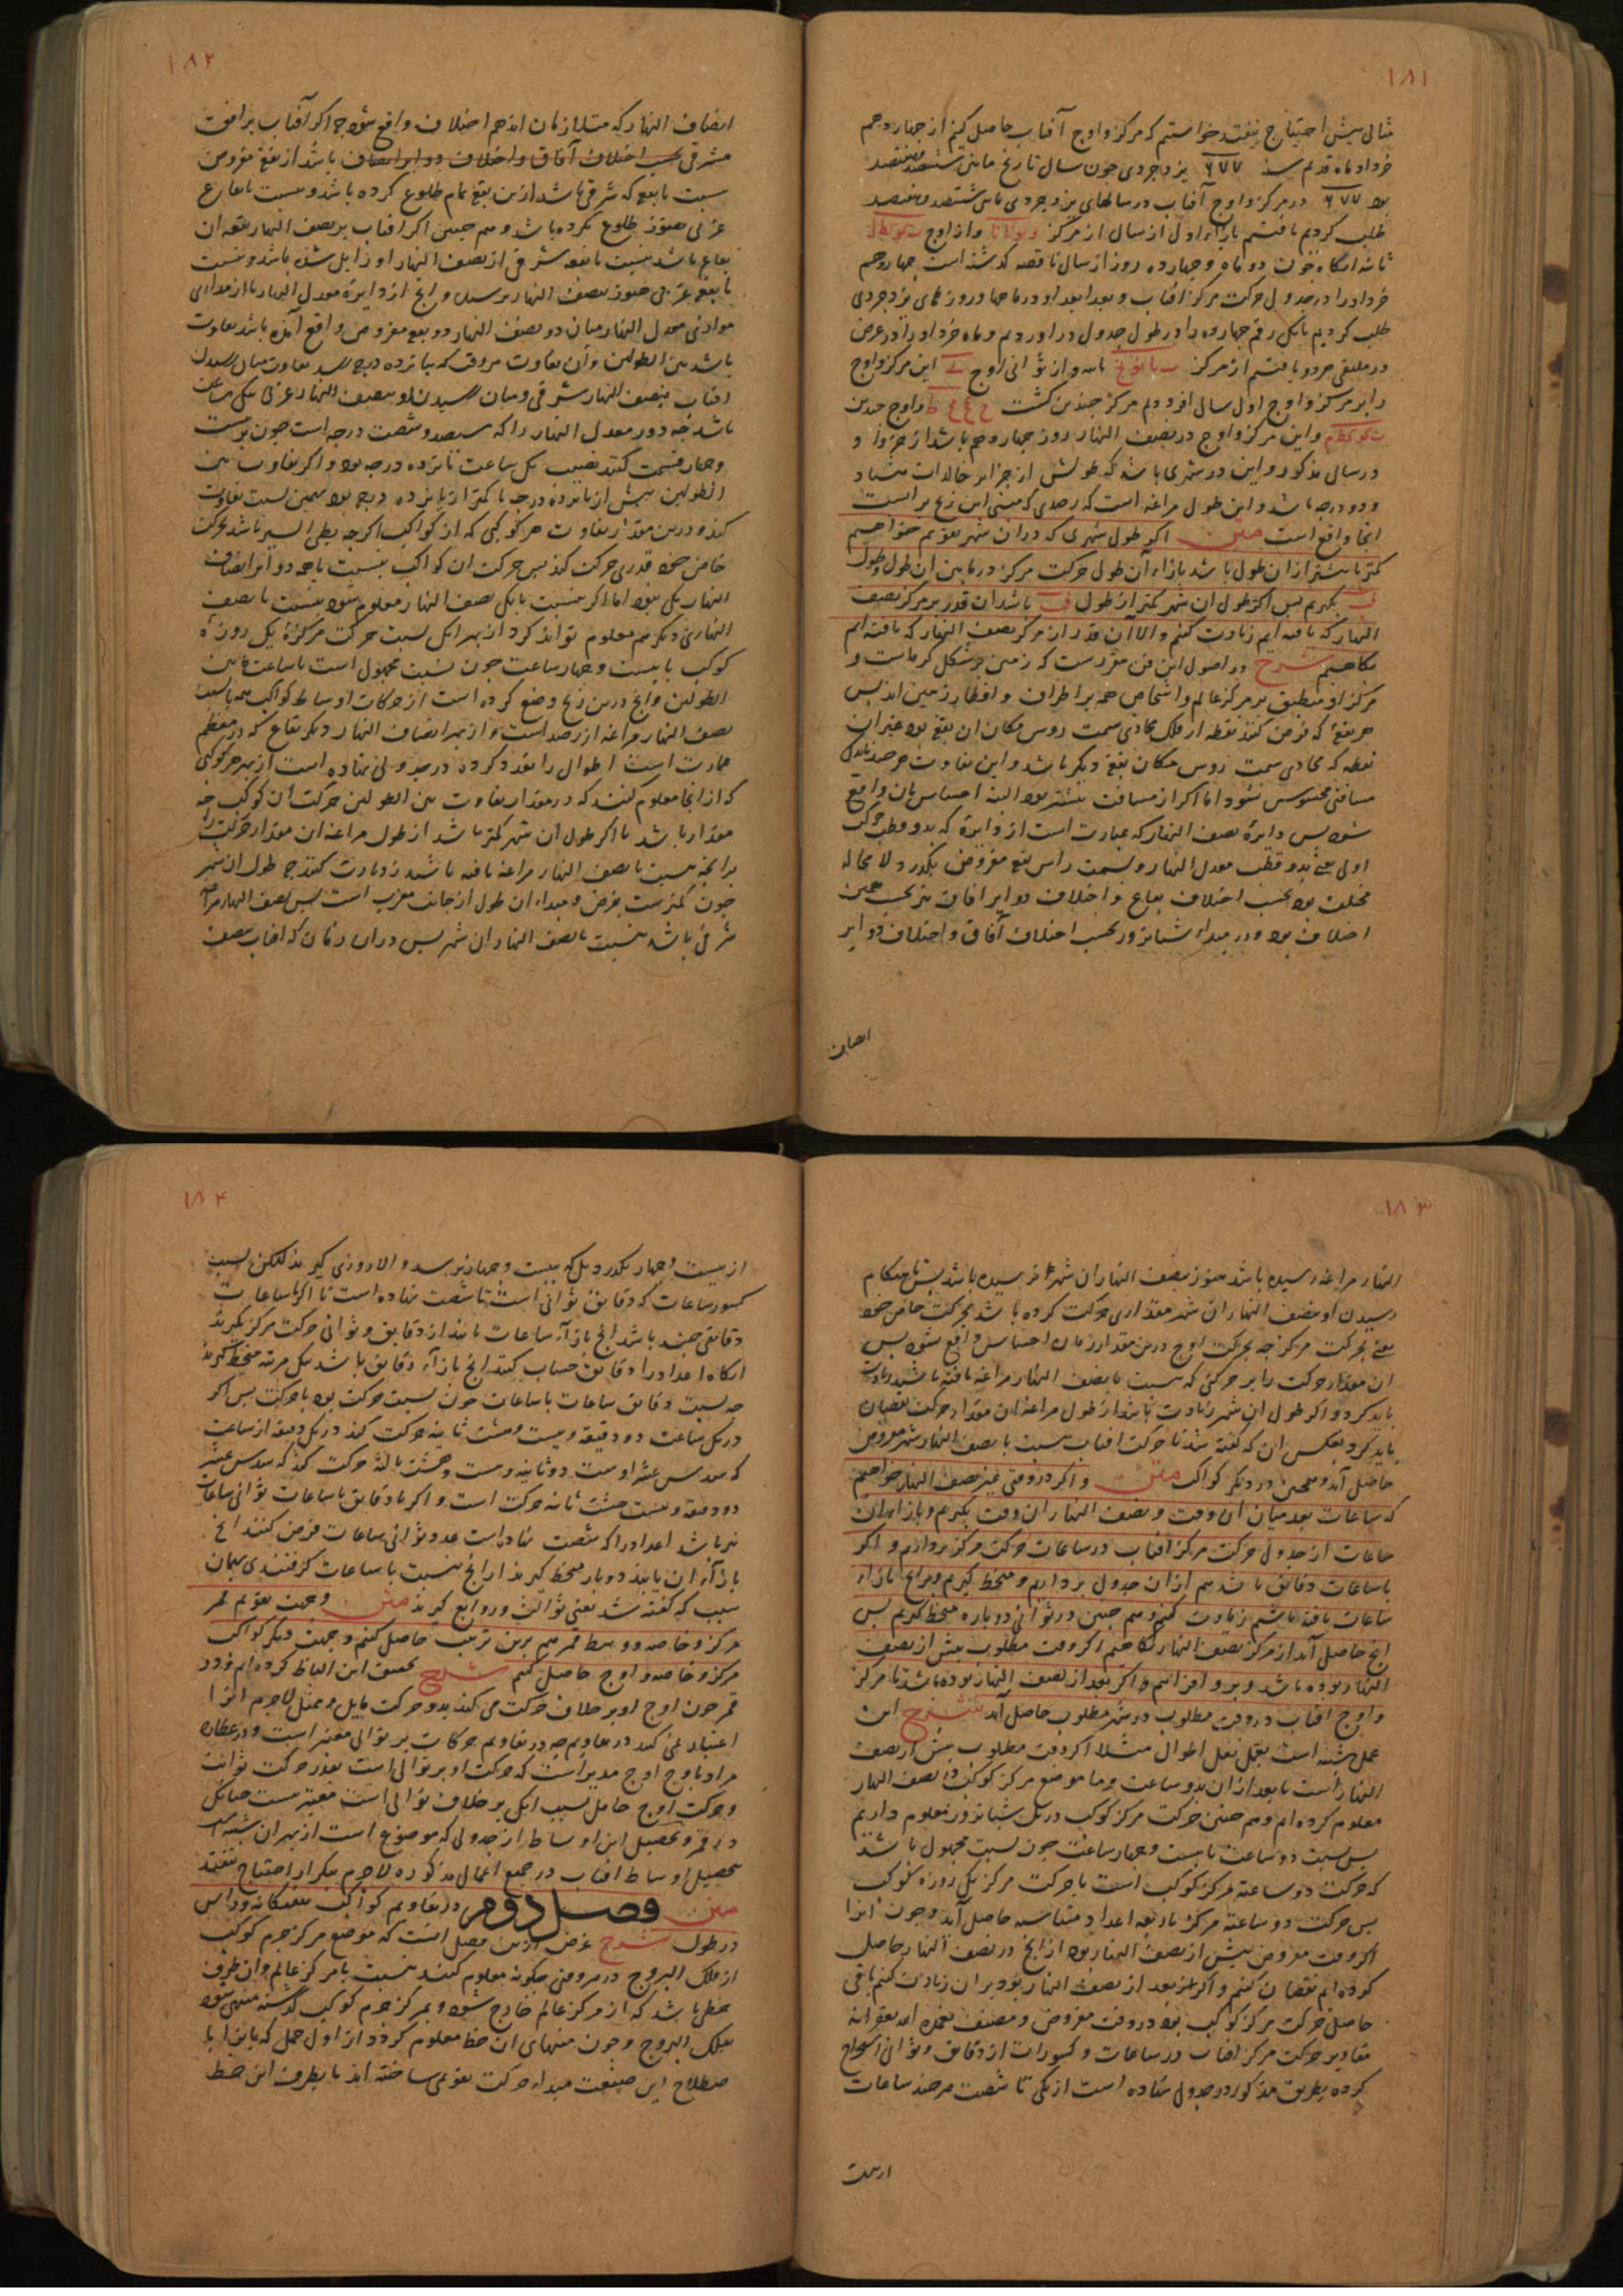 ۱۸۱
مثالی پیش احتیاج نیفتد خواستیم که مرکز و اوج آفتاب حاصل کنیم از چهاردهم
خرداد ماه قدیم سنه ۶۷۷ یزدجردی چون سال تاریخ مابین ششصد و هفتصد
بود ۶۷۷ در مرکز و اوج آفتاب در سالهای یزدجردی مابین ششصد و هفتصد
طلب کردیم یافتیم بازاء اول از سال از مرکز و از اوج
ثانیه آنگاه چون دو ماه و چهارده روز از سال ناقصه گذشته است چهاردهم
خرداد را در جدول حرکت مرکز آفتاب و بعد ابعد او در ماهها و روزهای یزدجردی
طلب کردیم بانکه رقم چهارده را در طول جدول در آوردیم و ماه خرداد را در عرض
در ملتقی هر دو یافتیم از مرکز و از ثوانی اوج این مرکز و اوج
را بر مرکز و اوج اول سال افزودیم مرکز چندین گشت و اوج چندین
و این مرکز و اوج در نصف النهار روز چهاردهم باشد از خرداد و
در سال مذکور و این در شهری باشد که طولش از جزایر خالدات هشتاد
و دو درجه باشد و این طول مراغه است که رصدی که مبنی این زیج بر آنست
آنجا واقع است متن اگر طول شهری که در آن شهر تقویم خواهیم
کمتر یا بیشتر از ان طول باشد بازاء آن طول حرکت مرکز در مابین ان طول و طول
فب بگیریم پس اگر طول ان شهر کمتر از طول فب باشد ان قدر بر مرکز نصف
النهار که یافته ایم زیادت کنیم و الا آن قدر از مرکز نصف النهار که یافته ایم
بکاهیم شرح در اصول این فن مقررست که زمین بر شکل کره است و
مرکز او منطبق بر مرکز عالم و اشخاص همه بر اطراف و اقطار زمین اند پس
هر بقعه که فرض کنند نقطه از فلک محاذی سمت روس سکان ان بقعه بود غیر ان
نقطه که محاذی سمت روس سکان بقعه دیگر باشد و این تفاوت هر چند باندک
مسافتی محسوس نشود اما اگر از مسافت بیشتر بود البته احساس بان واقع
شود پس دایره نصف النهار که عبارت است از دایره که بدو قطب حرکت
اولی یعنی بدو قطب معدل النهار و بسمت راس بقعه مفروض بگذرد لا محاله
مختلف بود بحسب اختلاف بقاع و اختلاف دوایر افاق نیز بحسب همین
اختلاف بود و در مبداء شبانروز بحسب اختلاف آفاق و اختلاف دوایر
انصاف
۱۸۲
انصاف النهار که مبداء زمان اند هم اختلاف واقع شود چه اگر آفتاب بر افق
مشرقی بحسب اختلاف آفاق و اختلاف دوایر انصاف باشد از بقعه مفروض
نسبت با بقعه که شرقی باشد از ین بقعه تمام طلوع کرده باشد و نسبت با بقاع
غربی هنوز طلوع نکرده باشد و هم چنین اگر افتاب بر نصف النهار بقعه ان
بقاع باشد نسبت با بقعه شرقی از نصف النهار او زایل شده باشد و نسبت
با بقعه غربی هنوز بنصف النهار نرسیده و انچ از دایره معدل النهار یا از مداری
موازی معدل النهار میان دو نصف النهار دو بقعه مفروض واقع آمده باشد تفاوت
باشد بین الطولین و آن تفاوت هر وقت که بپانزده درجه رسد تفاوت میان رسیدن
افتاب بنصف النهار شرقی و میان رسیدن او بنصف النهار غربی یکی ساعت
باشد چه دور معدل النهار را که سیصد و شصت درجه است چون بر بیست
و چهار قسمت کنند نصیب یک ساعت پانزده درجه بود و اگر تفاوت بین
الطولین بیش از پانزده درجه یا کمتر از پانزده درجه بود بهمین نسبت تفاوت
کند و درین مقدار تفاوت هر کوکبی که از کواکب اگر چه بطی السیر باشد بحرکت
خاص خود قدری حرکت کند پس حرکت ان کواکب بنسبت با همه دوایر انصاف
النهار یکی نبود اما اگر بنسبت با یک نصف النهار معلوم شود بنسبت با نصف
النهاری دیگر هم معلوم تواند کرد از بهر انک نسبت حرکت مرکز یک روزه
کوکب با بیست و چهار ساعت چون نسبت مجهول است با ساعت مابین
الطولین و انچ درین زیج وضع کرده است از حرکات اوساط کواکب همه بنسبت
نصف النهار مراغه از رصد است و از بهر انصاف النهار دیگر بقاع که در معظم
عمارت است اطوال را تعدد کرده در جدولی نهاده است از بهر هر کوکبی
که از انجا معلوم کنند که در مقدار تفاوت بین الطولین حرکت ان کوکب چه
مقدار باشد تا اگر طول ان شهر کمتر باشد از طول مراغه ان مقدار حرکت را
بر انچه نسبت با نصف النهار مراغه یافته باشد زیادت کنند چه طول ان شهر
چون کمترست بفرض و مبداء ان طول از جانب مغرب است پس نصف النهار مراغه
شرقی باشد بنسبت با نصف النهار ان شهر پس در ان زمان که افتاب بنصف
۱۸۳
النهار مراغه رسیده باشد هنوز بنصف النهار ان شهر نرسیده باشد پس تا هنگام
رسیدن او بنصف النهار ان شهر مقداری حرکت کرده باشد بحرکت خاص خود
یعنی بحرکت مرکز چه بحرکت اوج درین مقدار زمان احساس واقع نشود پس
ان مقدار حرکت را بر حرکتی که نسبت با نصف النهار مراغه یافته باشد زیادت
باید کرد و اگر طول ان شهر زیادت باشد از طول مراغه ان مقدار حرکت نقصان
باید کرد بعکس ان که گفته شد تا حرکت افتاب نسبت با نصف النهار شهر مفروض
حاصل آید و همچنین در دیگر کواکب متن و اگر در وقتی غیر نصف النهار خواهیم
که ساعات بعد میان ان وقت و نصف النهار ان وقت بگیریم و بازاء ان
ساعات از جدول حرکت مرکز افتاب در ساعات حرکت مرکز برداریم و اگر
با ساعات دقایق باشد هم از ان جدول برداریم و منحط گیریم و بر انچ بازاء
ساعات یافته باشیم زیادت کنیم و هم چنین در ثوانی دو باره منحط گیریم پس
انچ حاصل آید از مرکز نصف النهار بکاهیم اگر وقت مطلوب پیش از نصف
النهار بوده باشد و برو افزاییم و اگر بعد از نصف النهار بوده باشد تا مرکز
و اوج افتاب در وقت مطلوب در شهر مطلوب حاصل آید شرح این
عمل شبیه است بعمل نقل اطوال مثلا اگر وقت مطلوب پیش از نصف
النهار است یا بعد از ان بدو ساعت و ما موضع مرکز کوکب در نصف النهار
معلوم کرده ایم و هم چنین حرکت مرکز کوکب در یک شبانروز معلوم داریم
پس نسبت دو ساعت با بیست و چهار ساعت چون نسبت مجهول باشد
که حرکت دو ساعته مرکز کوکب است با حرکت مرکز یک روزه کوکب
پس حرکت دو ساعته مرکز باربعه اعداد متناسبه حاصل آید و چون انرا
اگر وقت مفروض پیش از نصف النهار بود از انچ در نصف النهار حاصل
کرده ایم نقصان کنیم و اگر بعد از نصف النهار بود بر ان زیادت کنیم باقی
حاصل حرکت مرکز کوکب بود در وقت مفروض و مصنف
مقادیر حرکت مرکز افتاب در ساعات و کسورات از دقایق و ثوانی استخراج
کرده بطریق مذکور در جدول نهاده است از یکی تا شصت هر چند ساعات
از بیست
۱۸۴
از بیست و چهار بگذرد بل که ببیست و چهار نرسد و الا روزی گیرند لکن بسبب
کسور ساعات که دقایق ثوانی است تا شصت نهاده است تا اگر با ساعات
دقایقی چند باشد انچ بازاء ساعات یابند از دقایق و ثوانی حرکت مرکز بگیرند
انگاه اعداد را دقایق حساب کنند انچ بازاء دقایق باشد بیک مرتبه منحط گیرند
چه نسبت دقایق ساعات با ساعات چون نسبت حرکت بود با حرکت پس اگر
در یک ساعت دو دقیقه و بیست و هشت ثانیه حرکت کند در یک دقیقه از ساعت
که سدس عشر اوست دو ثانیه و بیست و هشت ثالثه حرکت کند که سدس عشر
دو دقیقه و بیست هشت ثانیه حرکت است و اگر با دقایق با ساعات ثوانی ساعات
نیز باشد اعداد را که شصت نهاده است عدد ثوانی ساعات فرض کنند انچ
بازاء ان یابند دو بار منحط گیرند از انچ بنسبت با ساعات گرفتندی بهمان
سبب که گفته شد یعنی ثوالث و روابع گیرند متن و جهت تقویم قمر
مرکز و خاصه و وسط قمر هم برین ترتیب حاصل کنیم و جهت دیگر کواکب
مرکز و خاصه و اوج حاصل کنیم شرح تحقیق این الفاظ کرده ایم و در
قمر چون اوج او بر خلاف حرکت می کند بدو حرکت مایل و ممثل لاجرم انرا
اعتبار نمی کند در تقاویم چه در تقاویم حرکات بر توالی معتبر است و در عطارد
مراد باوج اوج مدیر است که حرکت او بر توالی است بقدر حرکت ثوابت
و حرکت اوج حامل بسبب انکه بر خلاف توالی است معتبر نیست چنانک
در قمر و تحصیل این اوساط از جدولی که موضوع است از بهر ان شبیه است
بتحصیل اوساط افتاب در جمیع اعمال مذکوره لاجرم بتکرار احتیاج نیفتد
متن فصل دوم در تقاویم کواکب ششگانه و راس
در طول شرح غرض ازین فصل انست که موضع مرکز جرم کوکب
از فلک البروج در هر وقتی چگونه معلوم کنند بنسبت با مرکز عالم و ان طرف
خطی باشد که از مرکز عالم خارج شود و بمرکز جرم کوکب گذشته منتهی شود
بفلک البروج و چون منتهای ان خط معلوم گردد از اول حمل که
صطلاح این صنعت مبداء حرکت تقویمی ساخته اند تا بطرف این خط